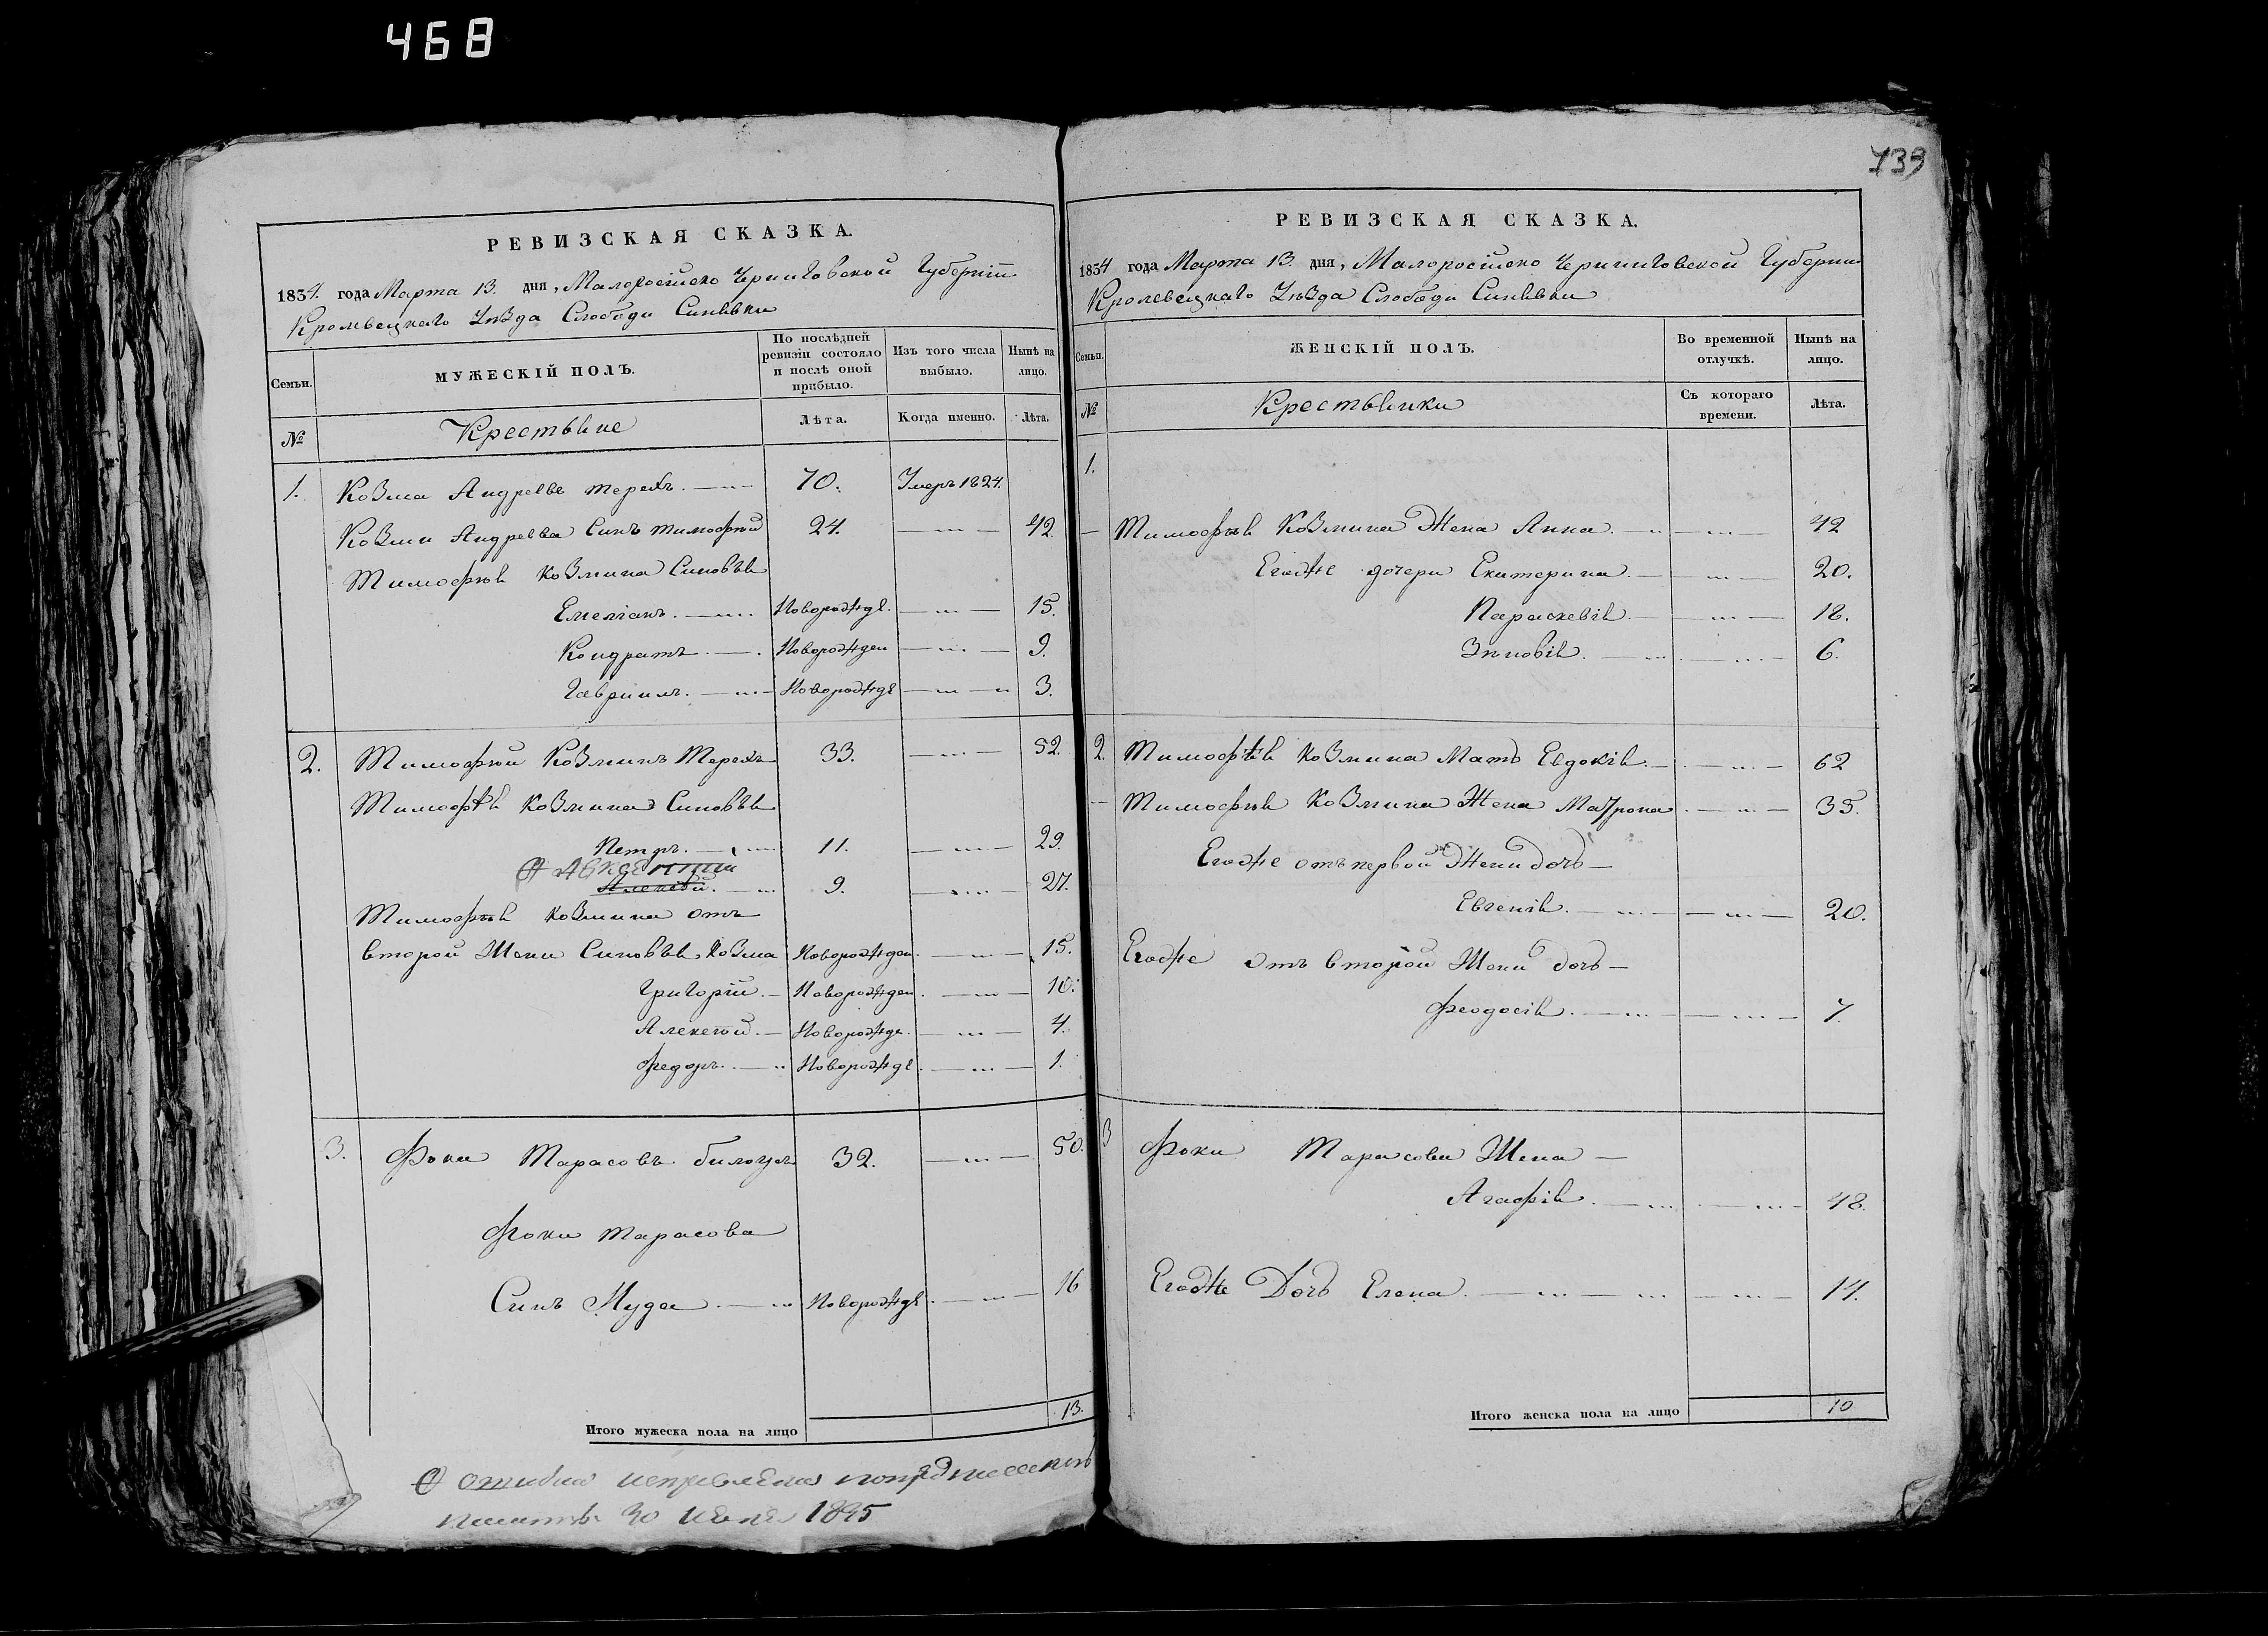 468
739
РЕВИЗСКАЯ СКАЗКА.
1834. года Марта 13. дня, Малоросійско Черниговской Губерніи
Кролевецкаго Уѣзда Слободи Синявки
Семьи. МУЖЕСКІЙ ПОЛЪ. По послѣдней ревизіи состояло и послѣ оной прибыло. Изъ того числа выбыло. Нынѣ на лицо.
№ Крестьяне Лѣта. Когда именно. Лѣта.
1. Козма Андреевъ 70. Умеръ 1824.
Козми Андреева Синъ Тимофѣй 24. 42.
Тимофѣя Козмина Синовья
Емеліанъ. Новорожде. 15.
Кондратъ. Новорожден 9.
Гавриилъ. Новорожде 3.
2. Тимофѣй Козминъ 33. 52.
Тимофѣя Козмина Синовья
Петръ. 11. 29.
Авксентий
Алексѣй. 9. 27.
Тимофѣя Козмина отъ
второй Жени Синовья, Козма Новорожден. 15.
Григорій. Новорожден. 10.
Алексѣй. Новорожде. 4.
Федоръ. Новорожде. 1.
3. Фока Тарасовъ 32. 50.
Фоки Тарасова
Синъ Новорожде. 16
Итого мужеска пола на лицо 13.
ошибка исправлена
30 1835
РЕВИЗСКАЯ СКАЗКА.
1834 года Марта 13. дня, Малоросійско Черниговской Губерніи
Кролевецкаго Уѣзда Слободи Синявки
Семьи. ЖЕНСКІЙ ПОЛЪ. Во временной отлучкѣ. Нынѣ на лицо.
№ Крестьянки Съ котораго времени. Лѣта.
1.
Тимофѣя Козмина Жена Анна. 42
Егожъ дочери Екатерина. 20.
Параскевія. 18.
Зѣновія. 6.
2. Тимофѣя Козмина Мать Евдокія. 62
Тимофѣя Козмина Жена Матрона 35.
Егоже отъ первой Жени дочь
Евгенія. 20.
Егоже отъ второй Жени дочь
Феодосія. 7.
3 Фоки Тарасова Жена
Агафія. 48.
Егоже Дочь Елена. 14.
Итого женска пола на лицо 10